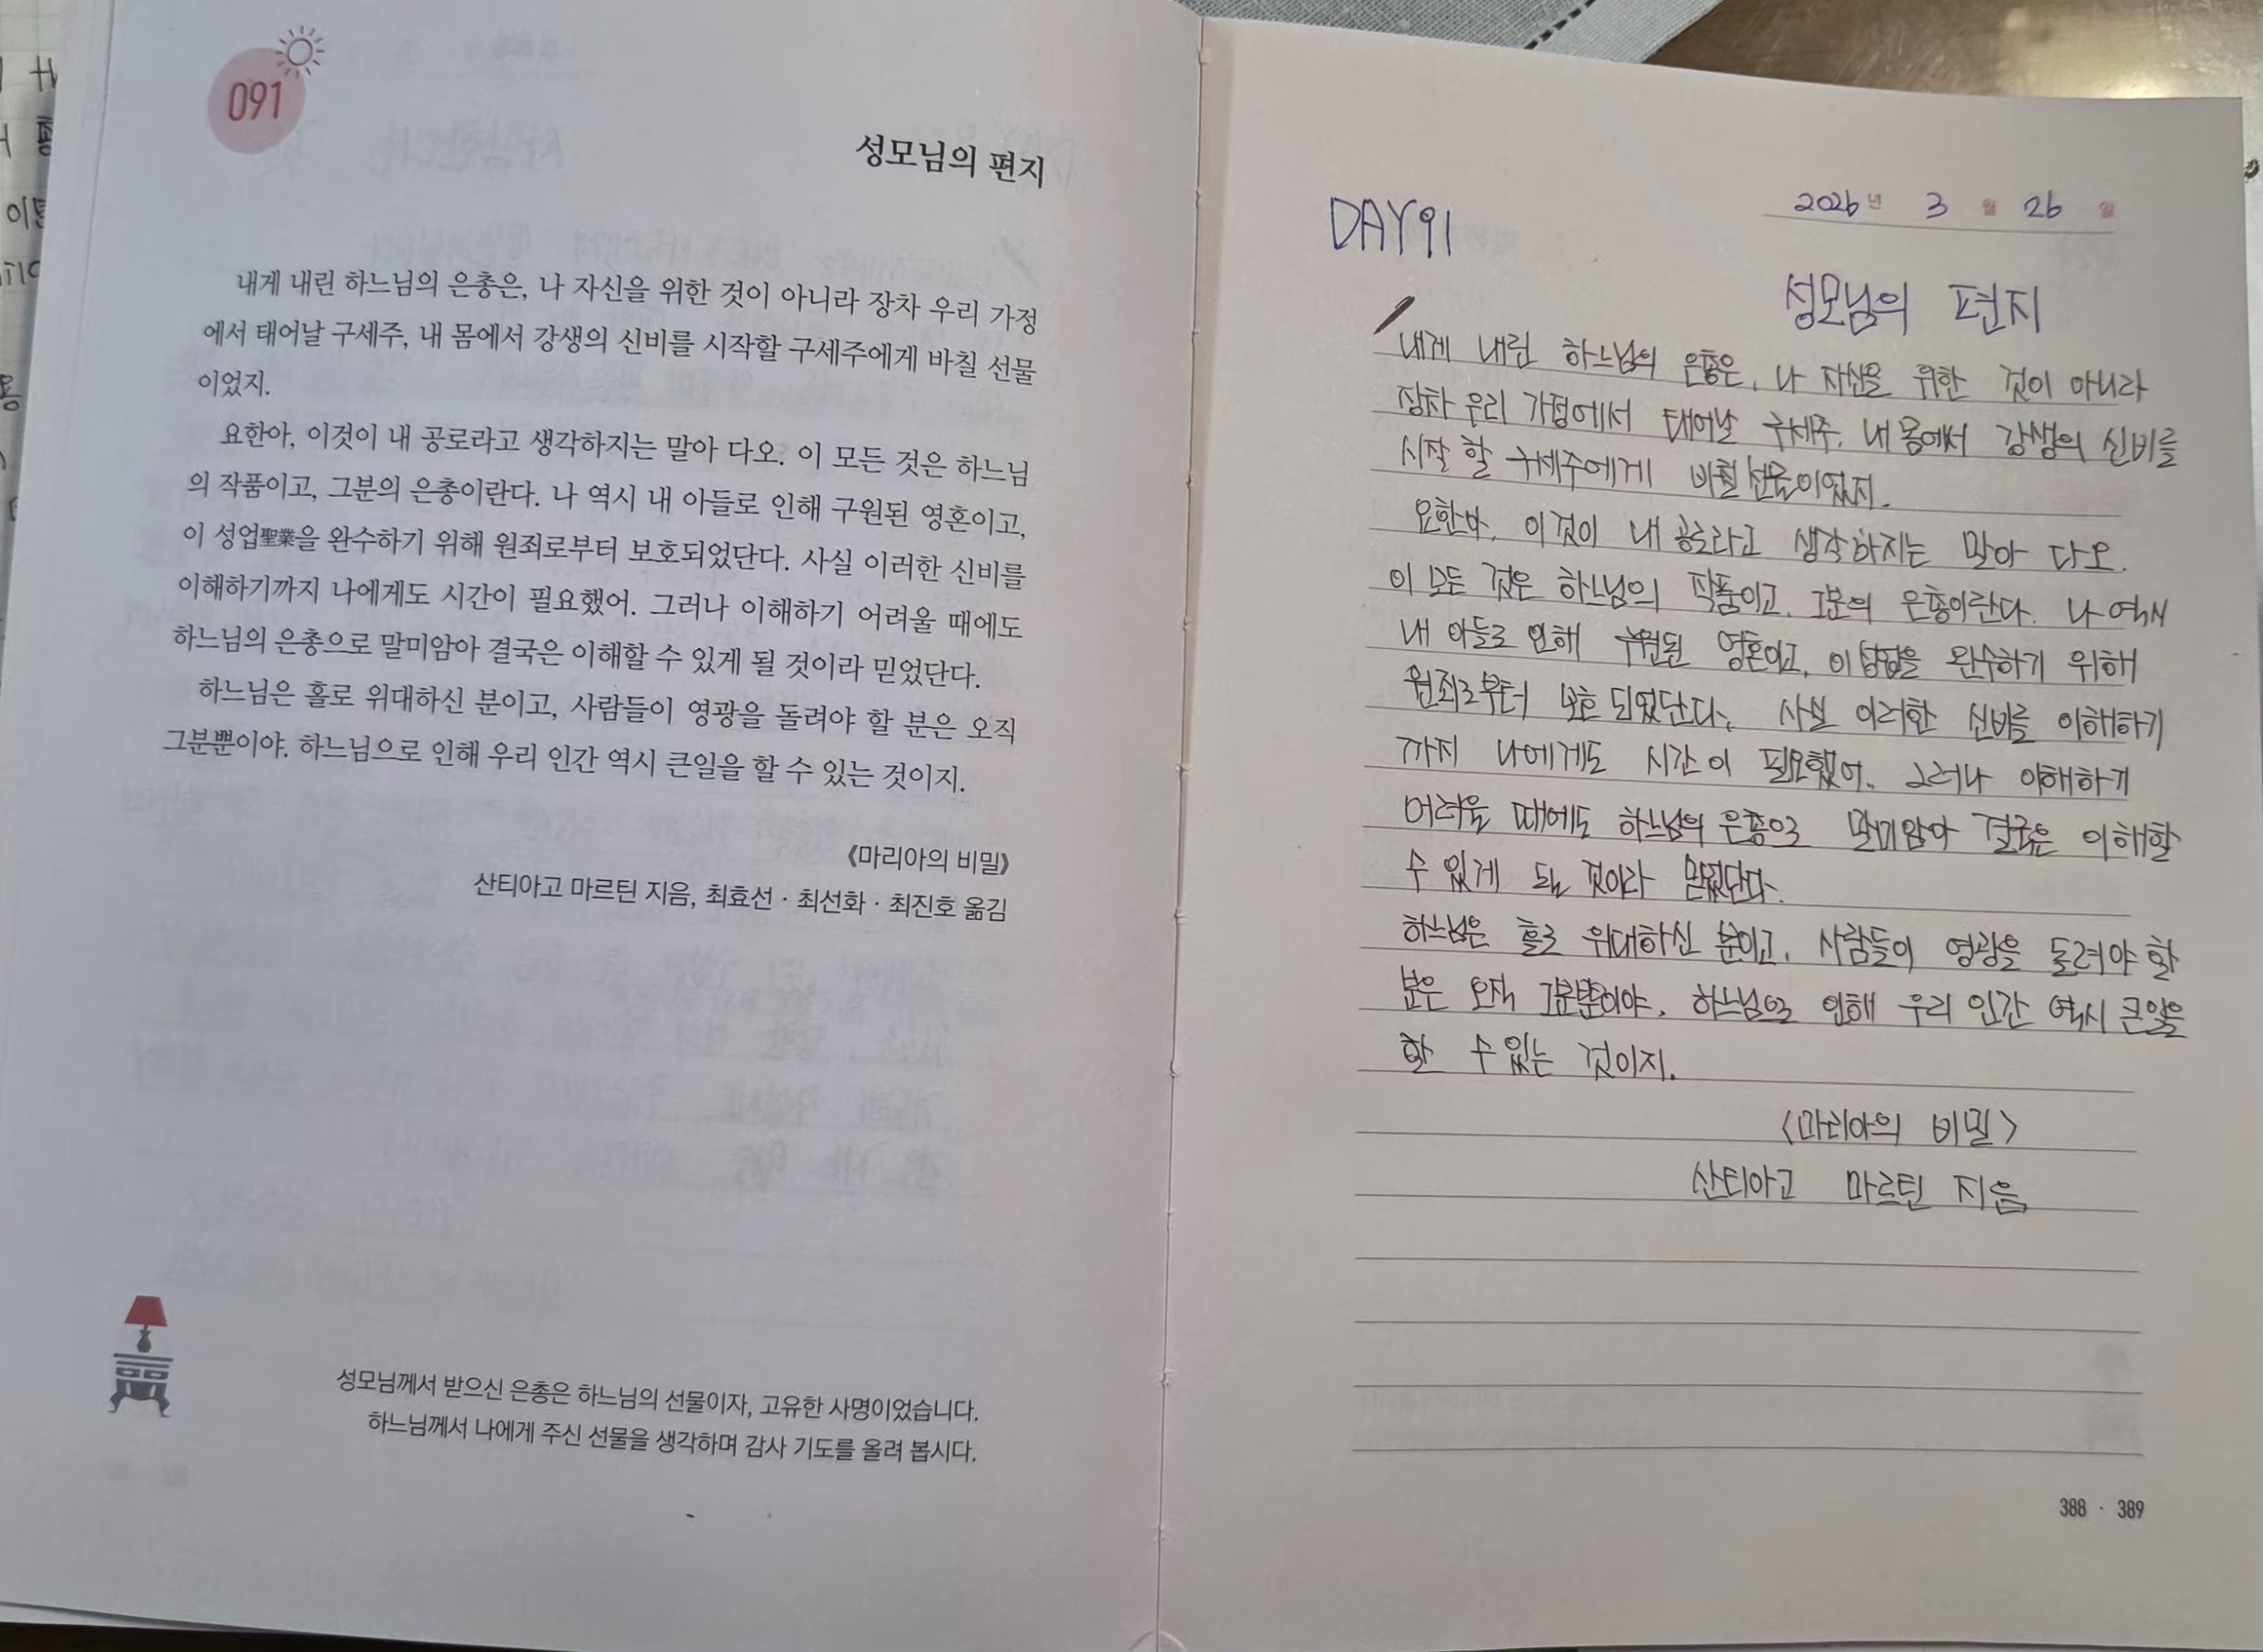 091
성모님의 편지
내게 내린 하느님의 은총은, 나 자신을 위한 것이 아니라 장차 우리 가정
에서 태어날 구세주, 내 몸에서 강생의 신비를 시작할 구세주에게 바칠 선물
이었지.
요한아, 이것이 내 공로라고 생각하지는 말아 다오. 이 모든 것은 하느님
의 작품이고, 그분의 은총이란다. 나 역시 내 아들로 인해 구원된 영혼이고,
이 성업聖業을 완수하기 위해 원죄로부터 보호되었단다. 사실 이러한 신비를
이해하기까지 나에게도 시간이 필요했어. 그러나 이해하기 어려울 때에도
하느님의 은총으로 말미암아 결국은 이해할 수 있게 될 것이라 믿었단다.
하느님은 홀로 위대하신 분이고, 사람들이 영광을 돌려야 할 분은 오직
그분뿐이야. 하느님으로 인해 우리 인간 역시 큰일을 할 수 있는 것이지.
《마리아의 비밀》
산티아고 마르틴 지음, 최효선 · 최선화 · 최진호 옮김
성모님께서 받으신 은총은 하느님의 선물이자, 고유한 사명이었습니다.
하느님께서 나에게 주신 선물을 생각하며 감사 기도를 올려 봅시다.
2026년 3월 26일
DAY91
성모님의 편지
내게 내린 하느님의 은총은, 나 자신을 위한 것이 아니라
장차 우리 가정에서 태어날 구세주, 내 몸에서 강생의 신비를
시작 할 구세주에게 바칠 선물이었지.
요한아, 이것이 내 공로라고 생각하지는 말아 다오.
이 모든 것은 하느님의 작품이고, 그분의 은총이란다. 나 역시
내 아들로 인해 구원된 영혼이고, 이 성업을 완수하기 위해
원죄로부터 보호 되었단다. 사실 이러한 신비를 이해하기
까지 나에게도 시간이 필요했어. 그러나 이해하기
어려울 때에도 하느님의 은총으로 말미암아 결국은 이해할
수 있게 될 것이라 믿었단다.
하느님은 홀로 위대하신 분이고, 사람들이 영광을 돌려야 할
분은 오직 그분뿐이야. 하느님으로 인해 우리 인간 역시 큰일을
할 수 있는 것이지.
〈마리아의 비밀〉
산티아고 마르틴 지음
388 · 389